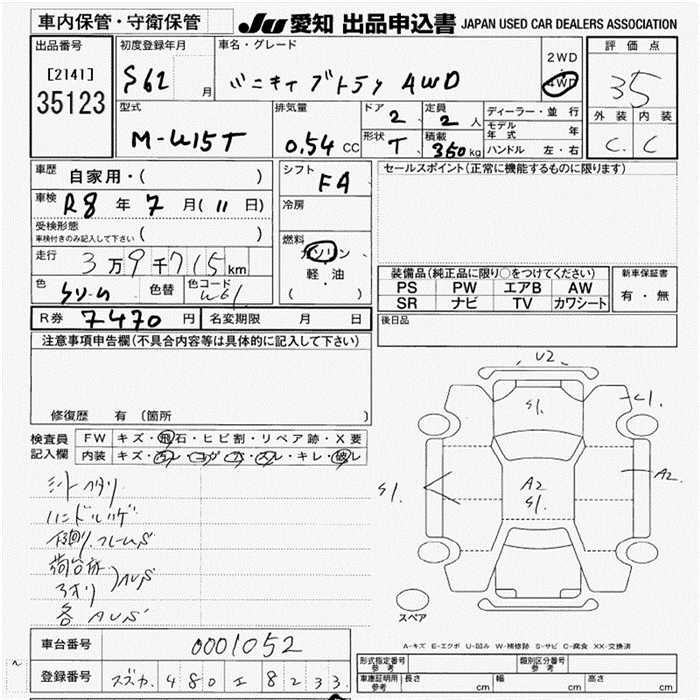 車内保管・守衛保管
JU 愛知 出品申込書 JAPAN USED CAR DEALERS ASSOCIATION
出品番号
[2141]
35123
初度登録年月
S62 月
車名・グレード
ミニキャブトラック 4WD
2WD
4WD
評価点
35
外装 内装
C. C
型式
M-U15T
排気量
0.54 CC
ドア 2
定員 2 人
形状 T
積載 350 kg
ディーラー・並行
モデル年式 年
ハンドル 左・右
車歴
自家用・( )
車検
R8 年 7 月(11 日)
受検形態
車検付きのみ記入して下さい ( )
走行
3万9千715km
色
クリーム
色替
色コード
W61
シフト
FA
冷房
燃料
ガソリン
軽・油
( )
セールスポイント(正常に機能するものに限ります)
装備品(純正品に限り○をつけてください)
PS PW エアB AW
SR ナビ TV カワシート
新車保証書
有・無
R券 7470 円 名変期限 月 日
後日品
注意事項申告欄(不具合内容等は具体的に記入して下さい)
修復歴 有 (箇所
検査員
記入欄
FW キズ・飛石・ヒビ割・リペア跡・X要
内装 キズ・汚レ・コゲ・穴・スレ・キレ・破レ
シートヘタリ
ハンドルハゲ
下廻り、フレームS
荷台床
アオリ
AUS
各AUS
U2
S1.
C1.
A2
S1.
S1.
A2.
スペア
A-キズ E-エクボ U-凹み W-補修跡 S-サビ C-腐食 XX-交換済
車台番号 0001052
登録番号 スズカ. 480 エ 8233
形式指定番号
参考
類別区分番号
参考
車庫証明用
参考
長さ cm 幅 cm 高さ cm